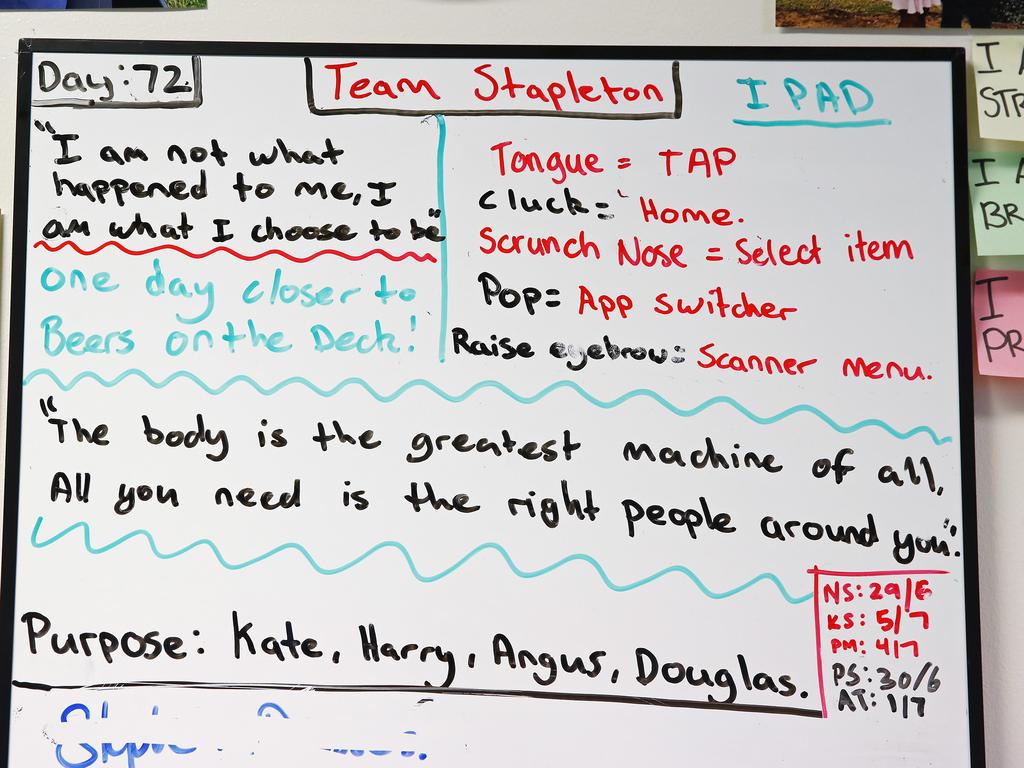 Day: 72
Team Stapleton
I PAD
"I am not what
happened to me, I
am what I choose to be"
one day closer to
Beers on the Deck!
Tongue = TAP
Cluck = Home.
Scrunch Nose = Select item
Pop = App switcher
Raise eyebrow = Scanner menu.
"The body is the greatest machine of all,
All you need is the right people around you".
Purpose: Kate, Harry, Angus, Douglas.
NS: 29/6
KS: 5/7
PM: 4/7
PS: 30/6
AT: 1/7
I
STR
I
BR
I
PR